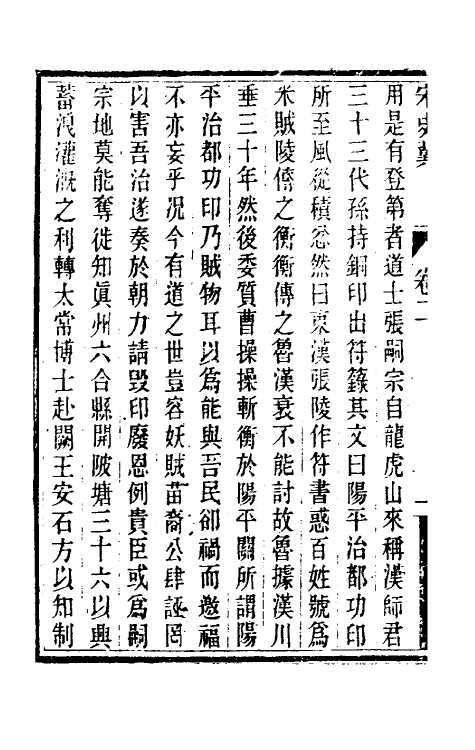 宋史翼 卷二 一
用是有登第者道士張嗣宗自龍虎山來稱漢師君
三十三代孫持銅印出符籙其文曰陽平治都功印
所至風從積忿然曰東漢張陵作符書惑百姓號為
米賊陵傳之衡衡傳之魯漢衰不能討故魯據漢川
垂三十年然後委質曹操操斬衡於陽平關所謂陽
平治都功印乃賊物耳以為能與吾民卻禍而邀福
不亦妄乎況今有道之世豈容妖賊苗裔公肆誣罔
以害吾治遂奏於朝力請毀印廢恩例貴臣或為嗣
宗地莫能奪徙知眞州六合縣開陂塘三十六以興
蓄洩灌溉之利轉太常博士赴闕王安石方以知制